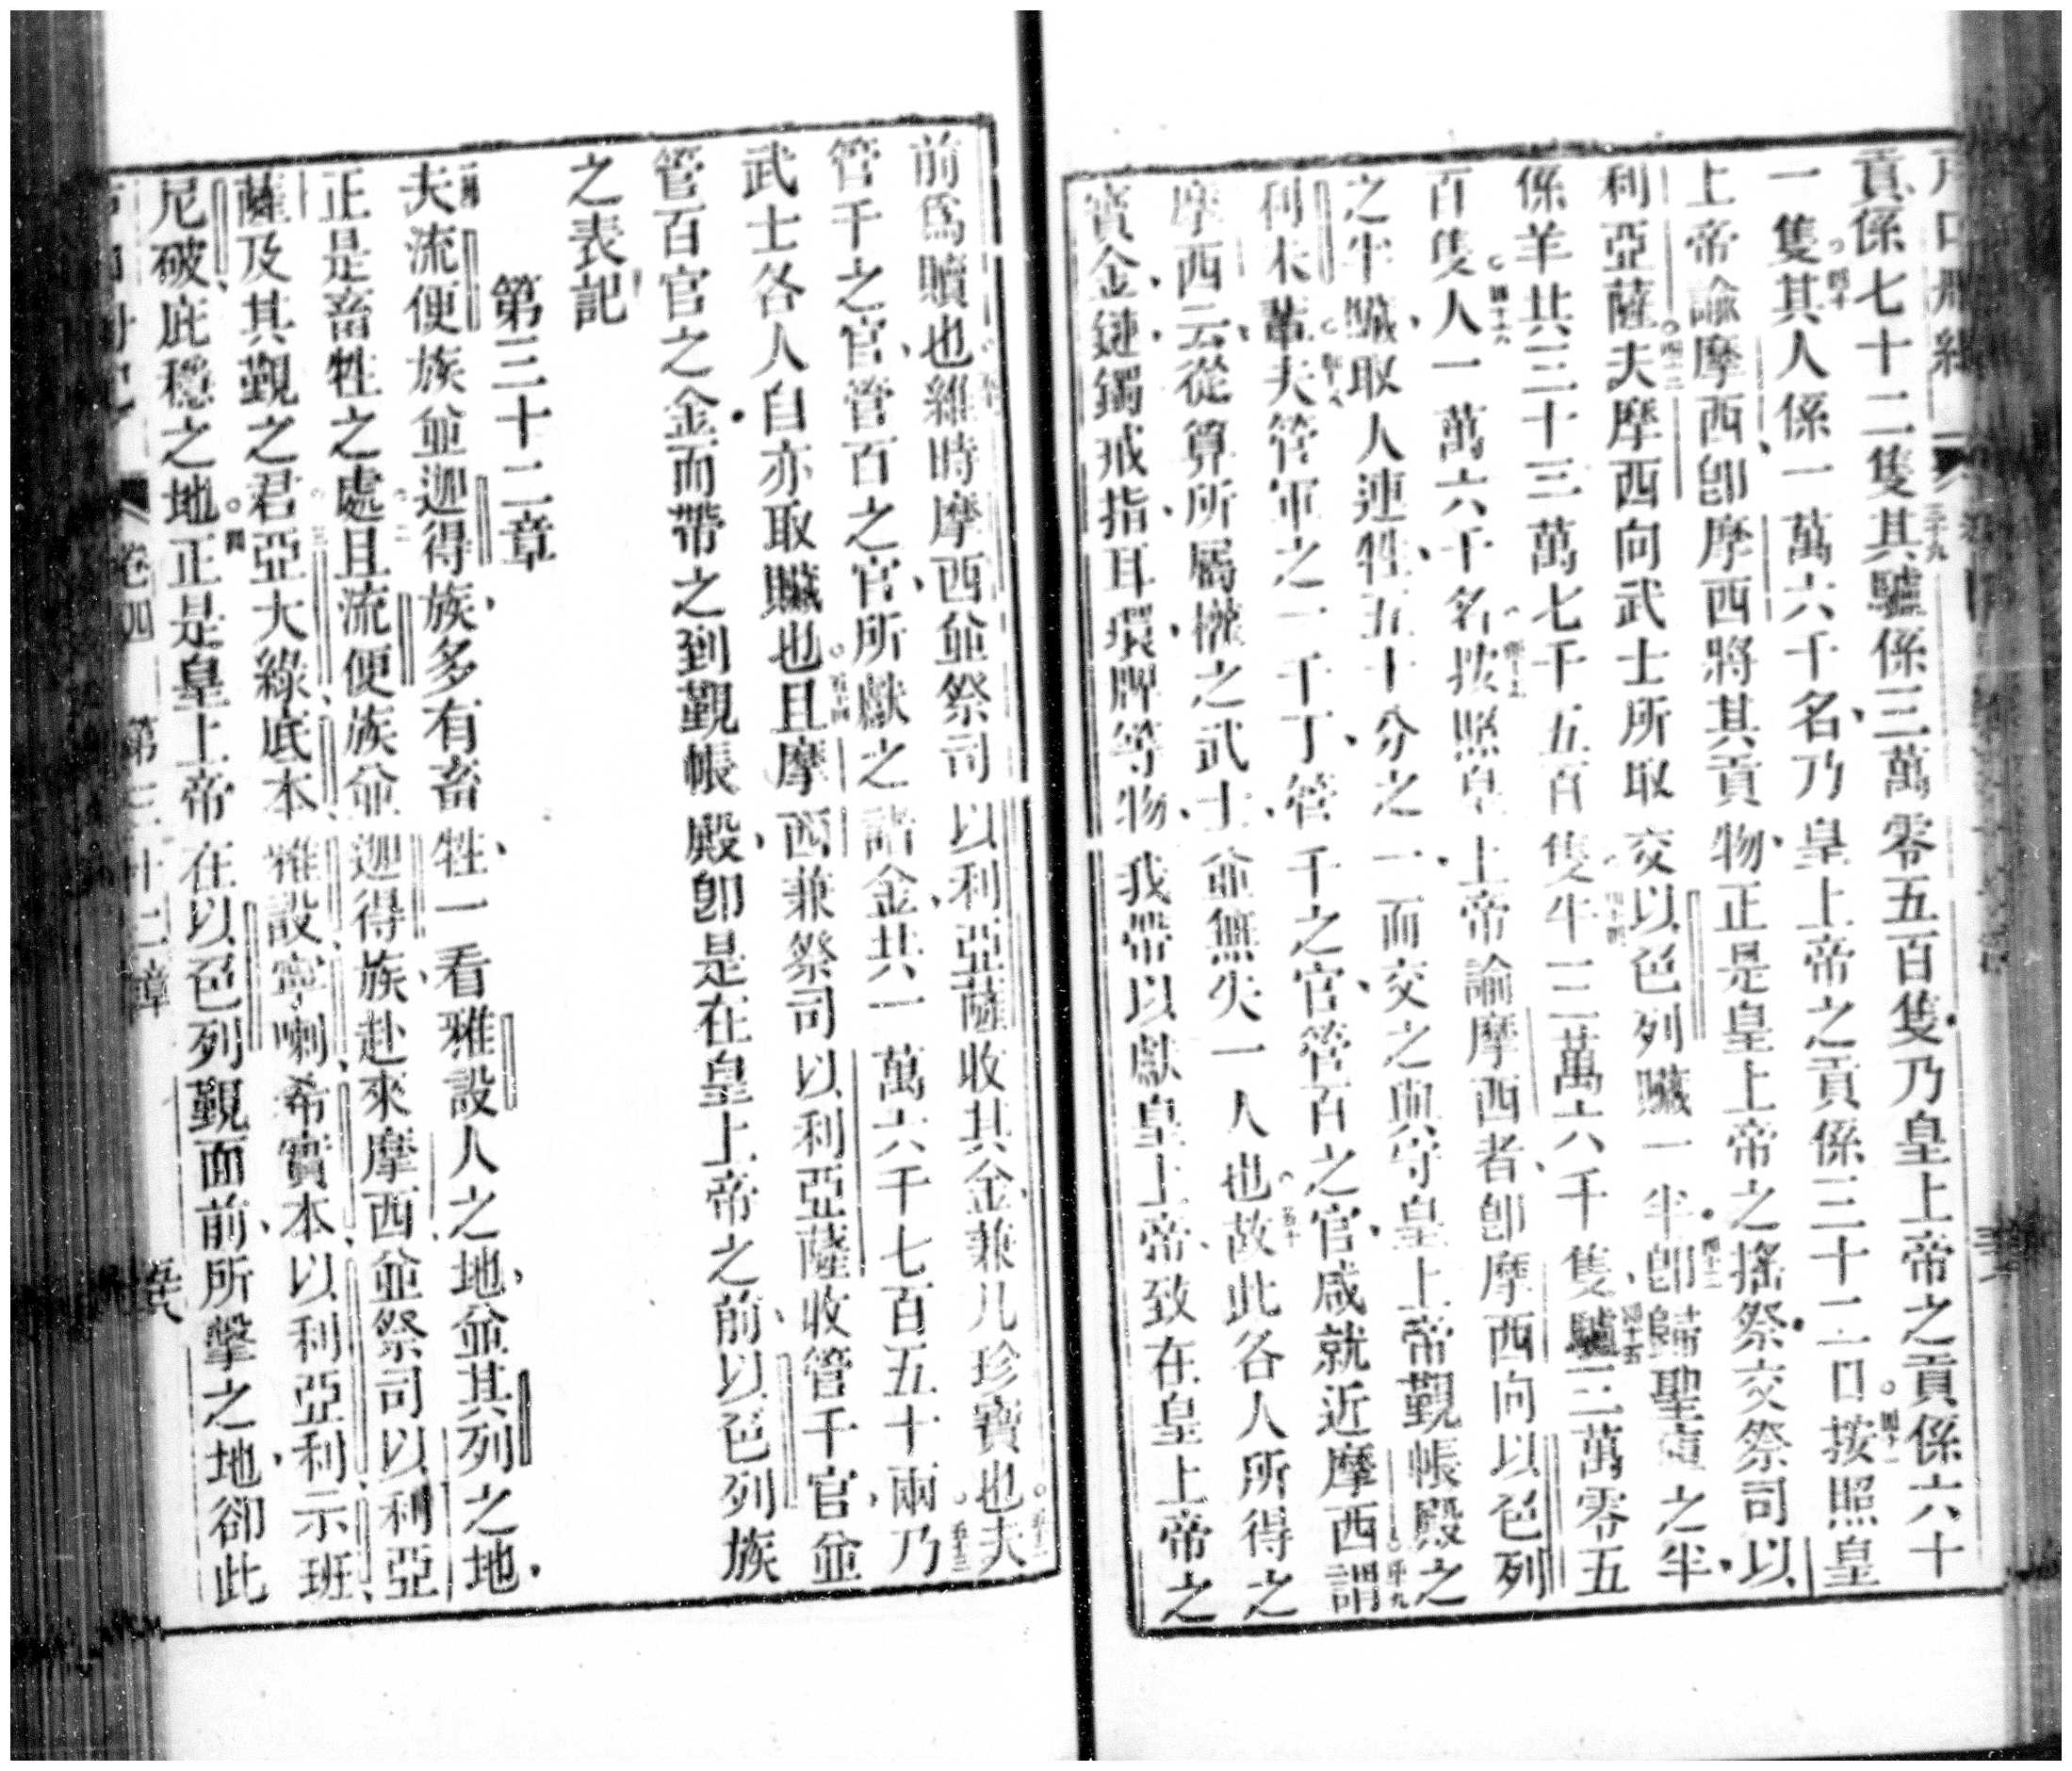 貢係七十二隻三十九其驢係三萬零五百隻乃皇上帝之貢係六十
一隻四十其人係一萬六千名乃皇上帝之貢係三十二口四十一按照皇
上帝諭摩西卽摩西將其貢物正是皇上帝之搖祭交祭司以
利亞薩四十二夫摩西向武士所取交以色列贓一半四十三卽歸聖會之半
係羊共三十三萬七千五百隻四十四牛三萬六千隻四十五驢三萬零五
百隻四十六人一萬六千名四十七按照皇上帝諭摩西者卽摩西向以色列
之半贓取人連牲五十分之一而交之與守皇上帝覲帳殿之
利未輩四十八夫管軍之一千丁管千之官管百之官咸就近摩西四十九謂
摩西云從算所屬權之武士並無失一人也五十故此各人所得之
寶金鏈鐲戒指耳環牌等物我帶以獻皇上帝致在皇上帝之
前爲贖也五十一維時摩西並祭司以利亞薩收其金兼凡珍寶也五十二夫
管千之官管百之官所獻之諸金共一萬六千七百五十兩五十三乃
武士各人自亦取贓也五十四且摩西兼祭司以利亞薩收管千官並
管百官之金而帶之到覲帳殿卽是在皇上帝之前以色列族
之表記
第三十二章
一夫流便族並迦得族多有畜牲一看雅設人之地並其列之地
正是畜牲之處二且流便族並迦得族赴來摩西並祭司以利亞
薩及其覲之君三亞大綠底本雅設寧喇希實本以利亞利示班
尼破庇穩之地四正是皇上帝在以色列覲面前所擊之地卻此
卷四 第三十二章